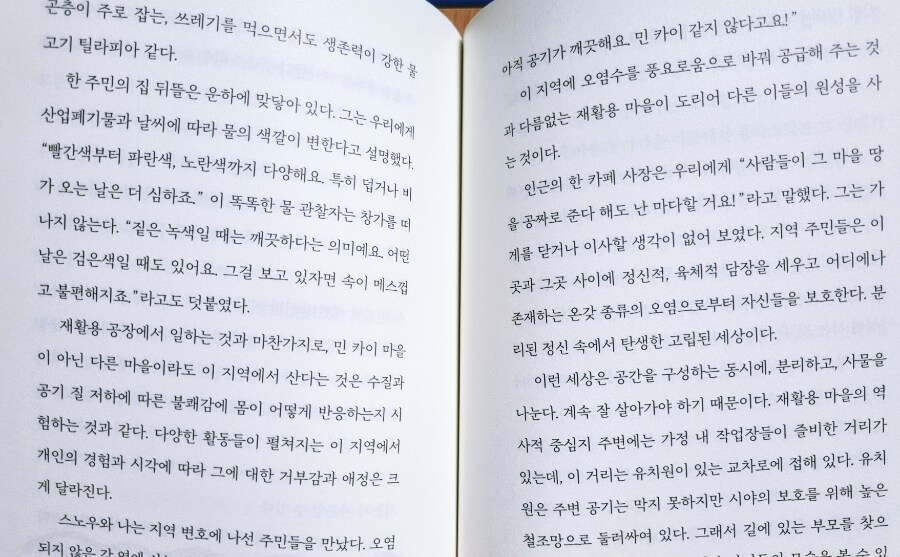 곤층이 주로 잡는, 쓰레기를 먹으면서도 생존력이 강한 물
고기 틸라피아 같다.
한 주민의 집 뒤뜰은 운하에 맞닿아 있다. 그는 우리에게
산업폐기물과 날씨에 따라 물의 색깔이 변한다고 설명했다.
“빨간색부터 파란색, 노란색까지 다양해요. 특히 덥거나 비
가 오는 날은 더 심하죠.” 이 똑똑한 물 관찰자는 창가를 떠
나지 않는다. “짙은 녹색일 때는 깨끗하다는 의미예요. 어떤
날은 검은색일 때도 있어요. 그걸 보고 있자면 속이 메스껍
고 불편해지죠.”라고도 덧붙였다.
재활용 공장에서 일하는 것과 마찬가지로, 민 카이 마을
이 아닌 다른 마을이라도 이 지역에서 산다는 것은 수질과
공기 질 저하에 따른 불쾌감에 몸이 어떻게 반응하는지 시
험하는 것과 같다. 다양한 활동들이 펼쳐지는 이 지역에서
개인의 경험과 시각에 따라 그에 대한 거부감과 애정은 크
게 달라진다.
스노우와 나는 지역 변호에 나선 주민들을 만났다. 오염
되지 않은
아직 공기가 깨끗해요. 민 카이 같지 않다고요!”
이 지역에 오염수를 풍요로움으로 바꿔 공급해 주는 것
과 다름없는 재활용 마을이 도리어 다른 이들의 원성을 사
는 것이다.
인근의 한 카페 사장은 우리에게 “사람들이 그 마을 땅
을 공짜로 준다 해도 난 마다할 거요!”라고 말했다. 그는 가
게를 닫거나 이사할 생각이 없어 보였다. 지역 주민들은 이
곳과 그곳 사이에 정신적, 육체적 담장을 세우고 어디에나
존재하는 온갖 종류의 오염으로부터 자신들을 보호한다. 분
리된 정신 속에서 탄생한 고립된 세상이다.
이런 세상은 공간을 구성하는 동시에, 분리하고, 사물을
나눈다. 계속 잘 살아가야 하기 때문이다. 재활용 마을의 역
사적 중심지 주변에는 가정 내 작업장들이 즐비한 거리가
있는데, 이 거리는 유치원이 있는 교차로에 접해 있다. 유치
원은 주변 공기는 막지 못하지만 시야의 보호를 위해 높은
철조망으로 둘러싸여 있다. 그래서 길에 있는 부모를 찾으